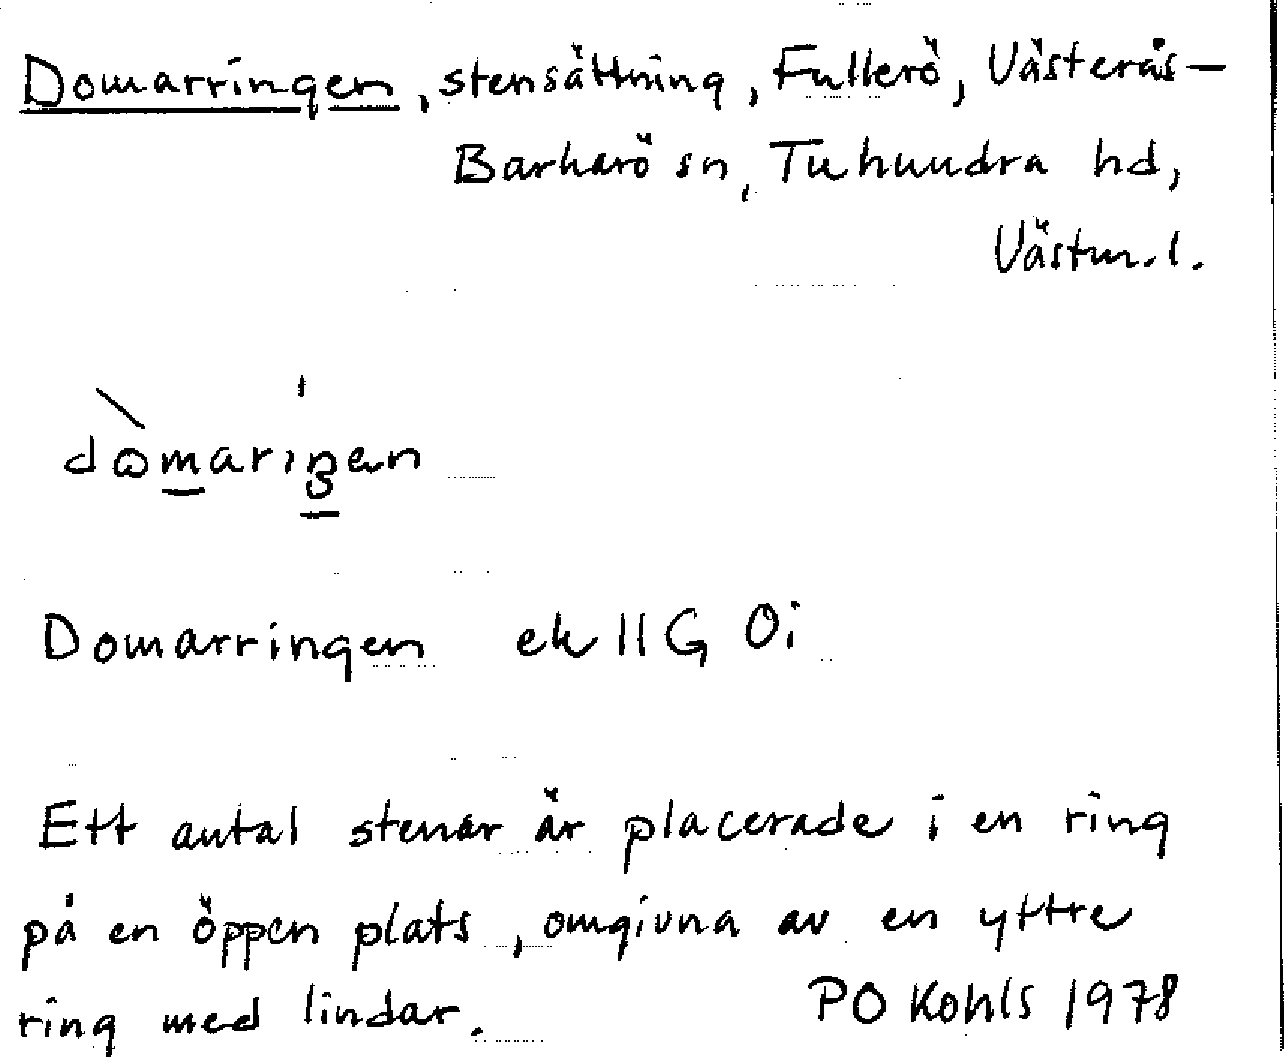 Domarringen, stensättning, Fullerö, Västerås-
Barkarö sn, Tuhundra hd,
Västm.l.
Domarringen ek 11G 0i
Ett antal stenar är placerade i en ring
på en öppen plats, omgivna av en yttre
ring med lindar. PO Kohls 1978